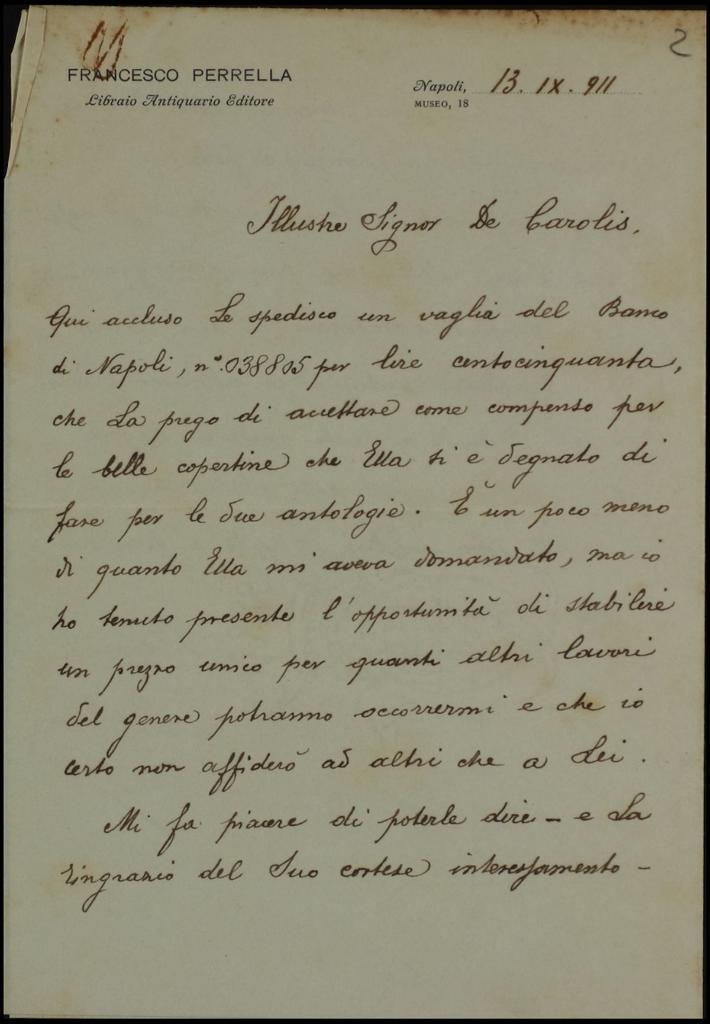 2
FRANCESCO PERRELLA
Libraio Antiquario Editore
Napoli, 13. IX. 911
MUSEO, 18
Illustre Signor De Carolis,
Qui accluso Le spedisco un vaglia del Banco
di Napoli, n.° 038805 per lire centocinquanta,
che La prego di accettare come compenso per
le belle copertine che Ella si è degnato di
fare per le due antologie. È un poco meno
di quanto Ella mi aveva domandato, ma io
ho tenuto presente l'opportunità di stabilire
un prezzo unico per quanti altri lavori
del genere potranno occorrermi e che io
certo non affiderò ad altri che a Lei.
Mi fa piacere di poterle dire - e La
ringrazio del Suo cortese interessamento -